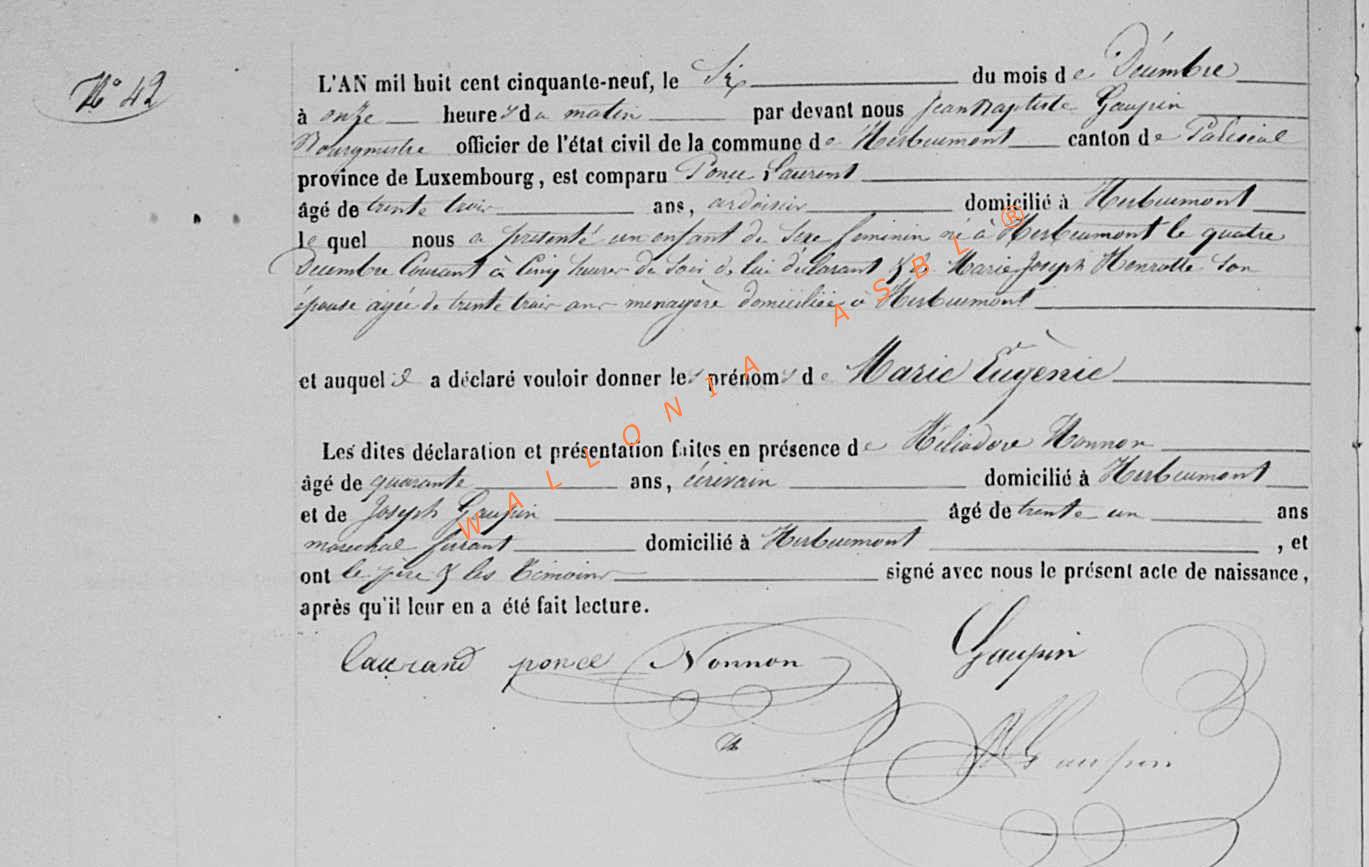 N° 42
L'AN mil huit cent cinquante-neuf, le Six du mois de Décembre
à onze heures du matin par devant nous Jean Baptiste Gaupin
Bourgmestre officier de l'état civil de la commune de Herbeumont canton de Paliseul
province de Luxembourg, est comparu Ponce Laurent
âgé de trente trois ans, ardoisier domicilié à Herbeumont
le quel nous a présenté un enfant de Sexe féminin né à Herbeumont le quatre
Décembre Courant à Cinq heures du Soir de lui déclarant & de Marie Joseph Henrotte Son
épouse agée de trente trois ans menagère domiciliée à Herbeumont
et auquel il a déclaré vouloir donner les prénoms de Marie Eugènie
Les dites déclaration et présentation faites en présence de Héliodore Nonnon
âgé de quarante ans, écrivain domicilié à Herbeumont
et de Joseph Gaupin âgé de trente un ans
marechal ferrant domicilié à Herbeumont , et
ont le père & les témoins signé avec nous le présent acte de naissance,
après qu'il leur en a été fait lecture.
laurand ponce Nonnon Gaupin
Gaupin
WALLONIA ASBL ®